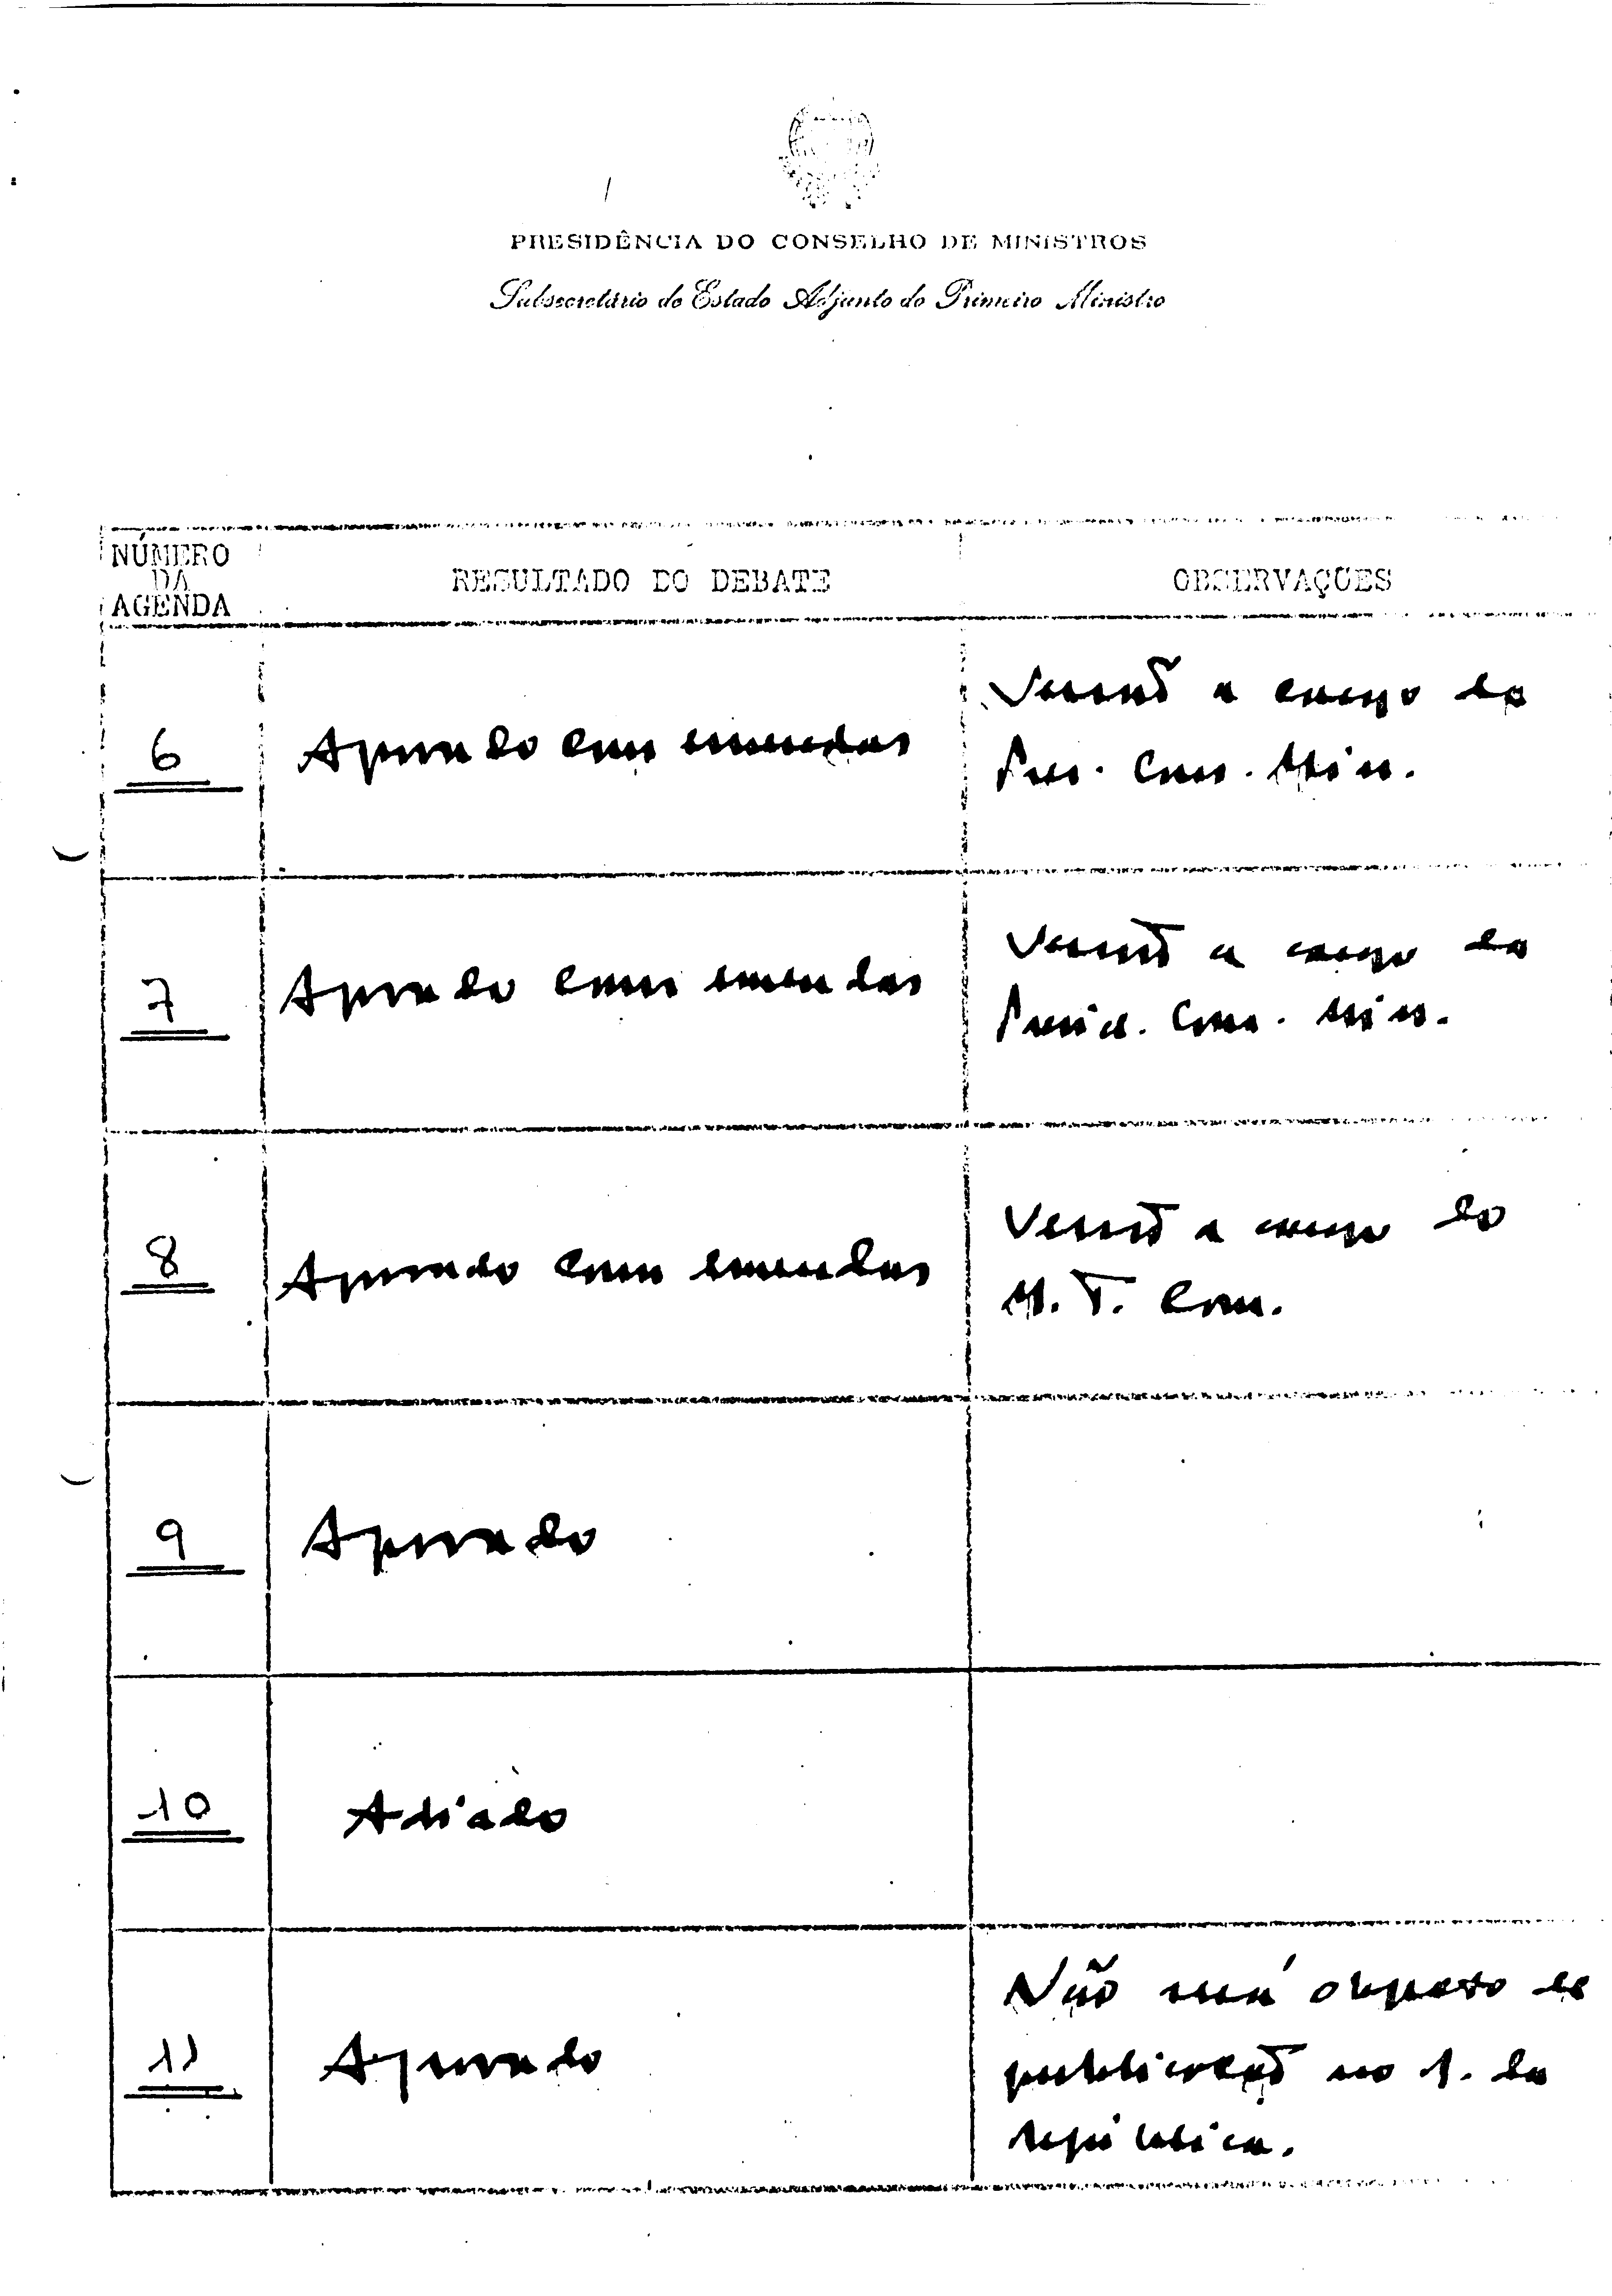 PRESIDÊNCIA DO CONSELHO DE MINISTROS
Subsecretário de Estado Adjunto do Primeiro Ministro
NÚMERO
DA
AGENDA
RESULTADO DO DEBATE
OBSERVAÇÕES
6
Aprovado com emendas
Versão a cargo da
Pres. Cons. Min.
7
Aprovado com emendas
Versão a cargo da
Presid. Cons. Min.
8
Aprovado com emendas
Versão a cargo do
M. T. Com.
9
Aprovado
10
Adiado
11
Aprovado
Não será objecto de
publicação no D. da
república.